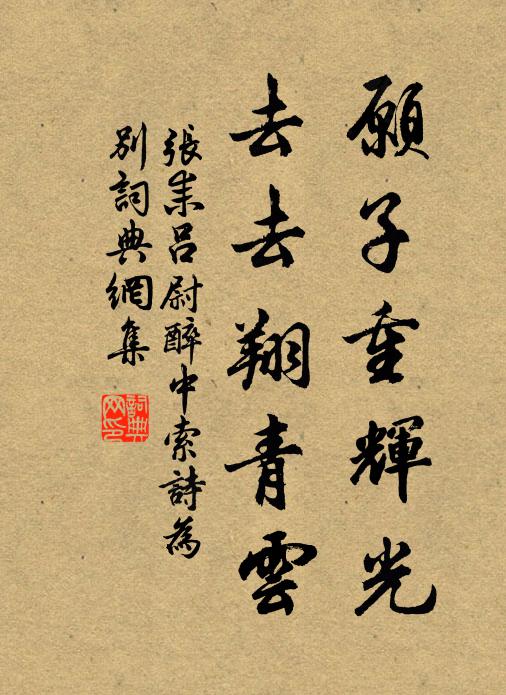 願子重輝光
去去翔青雲
張耒呂尉醉中索詩為
別詞典網集
詞典網印